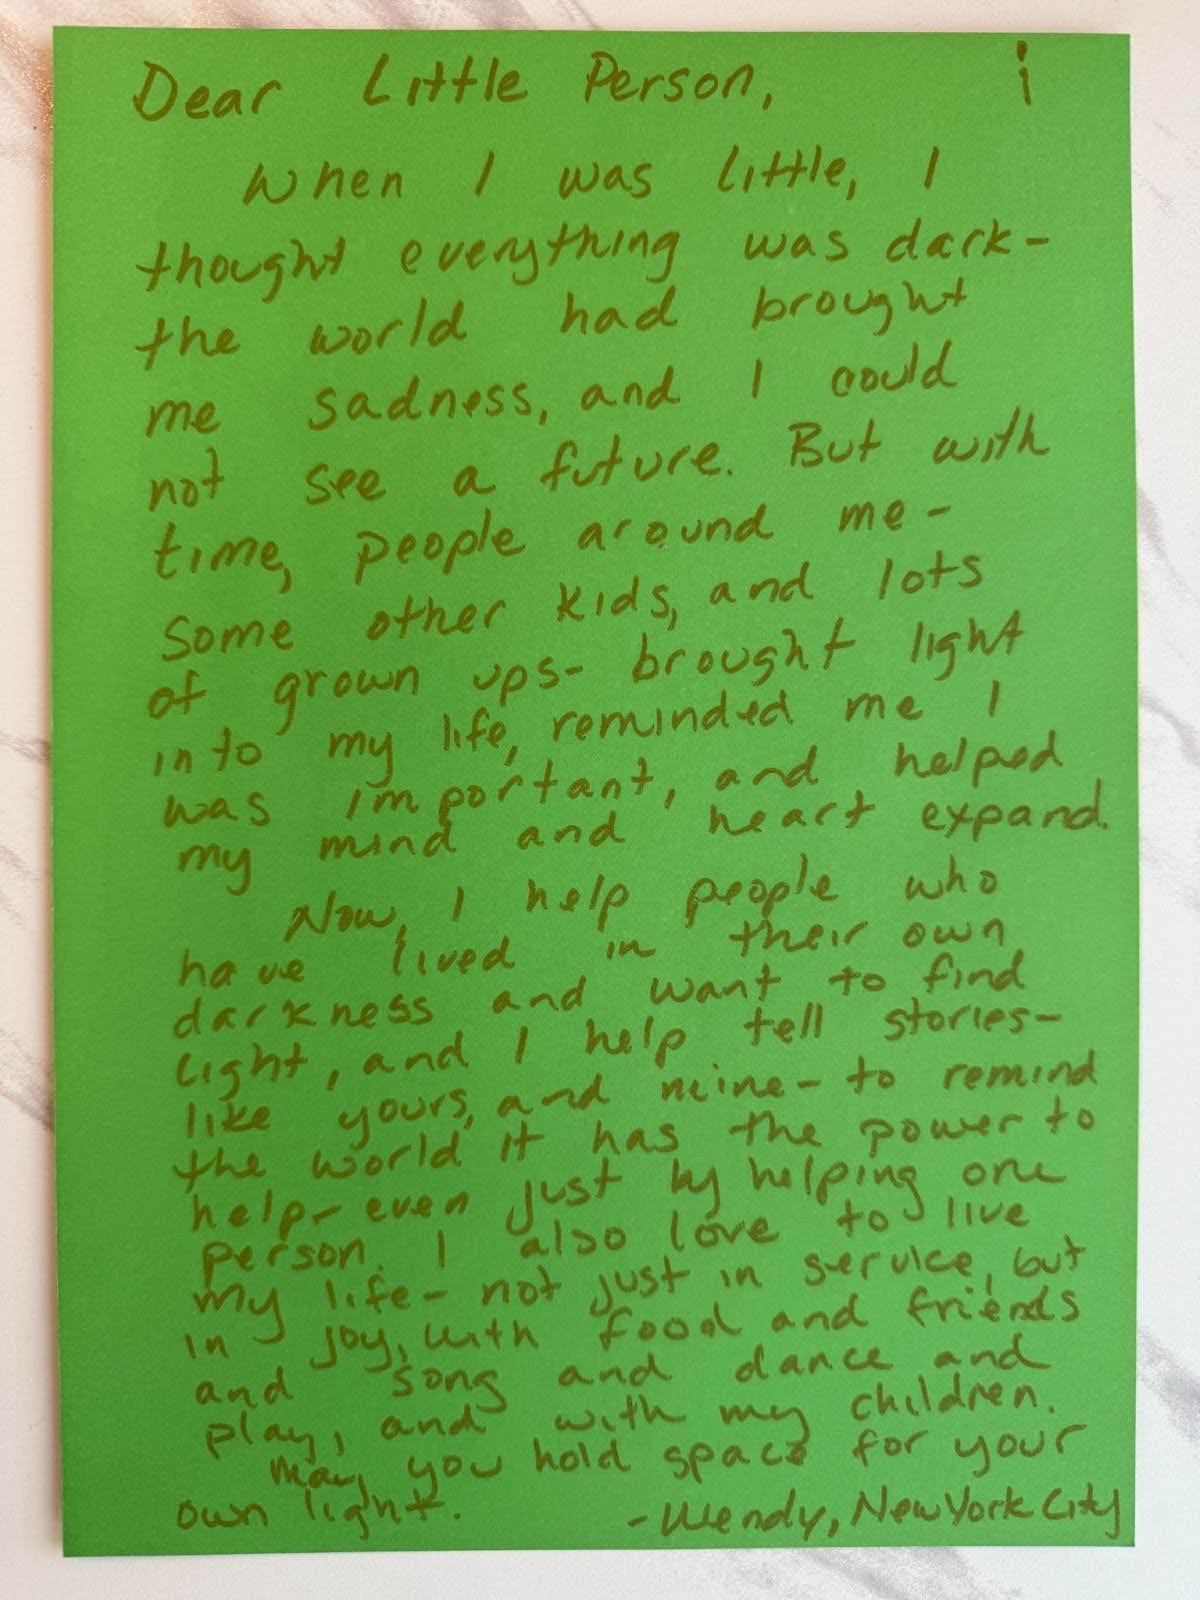 Dear Little Person,
i
When I was little, I
thought everything was dark-
the world had brought
me sadness, and I could
not see a future. But with
time, people around me -
some other kids, and lots
of grown ups- brought light
into my life, reminded me I
was important, and helped
my mind and heart expand.
Now, I help people who
have lived in their own
darkness and want to find
light, and I help tell stories-
like yours, and mine- to remind
the world it has the power to
help- even just by helping one
person. I also love to live
my life- not just in service, but
in joy, with food and friends
and song and dance and
play, and with my children.
May you hold space for your
own light.
-Wendy, New York City